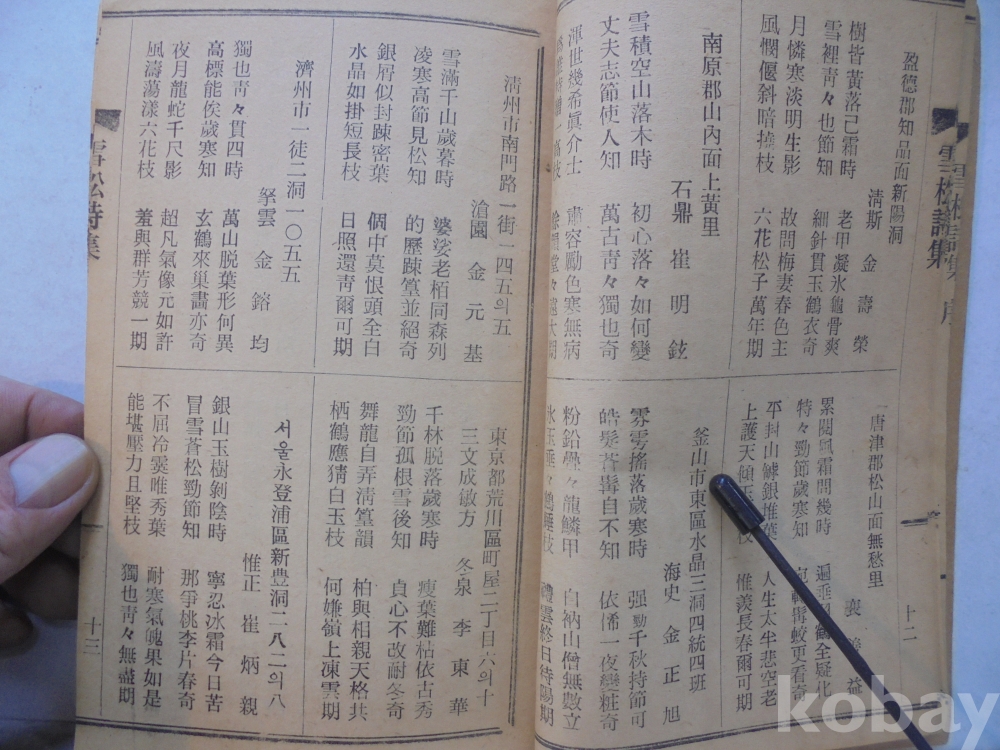 雪松詩集
盈德郡知品面新陽洞
淸斯 金壽榮
樹皆黃落己霜時 老甲凝氷龜骨爽
雪裡靑々也節知 細針貫玉鶴衣奇
月憐寒淡明生影 故問梅妻春色主
風憫偃斜暗撓枝 六花松子萬年期
南原郡山內面上黃里
石鼎 崔明鉉
雪積空山落木時 初心落々如何變
丈夫志節使人知 萬古靑々獨也奇
渾世幾希眞介士 肅容勵色寒無病
十二
唐津郡松山面無愁里
裵 益
累閱風霜問幾時
特々勁節歲寒知 更看奇
平封山 銀堆葉 人生太半悲空老
上護天傾玉 枝 惟羨長春爾可期
釜山市東區水晶三洞四統四班
海史 金正旭
雰雩搖落歲寒時 强勁千秋持節可
皓髮蒼髯自不知 依俙一夜變粧奇
粉鉛疊々龍鱗甲 白衲山僧無數立
枝 禮雲終日待陽期
淸州市南門路一街一四五의五
滄園 金元基
雪滿千山歲暮時 婆娑老栢同森列
凌寒高節見松知 的歷踈篁並絕奇
銀屑似封踈密葉 個中莫恨頭全白
水晶如掛短長枝 日照還靑爾可期
濟州市一徒二洞一〇五五
雲 金鎔均
獨也靑々貫四時 萬山脫葉形何異
高標能俟歲寒知 玄鶴來巢畵亦奇
夜月龍蛇千尺影 超凡氣像元如許
風濤蕩漾六花枝 羞與群芳競一期
東京都荒川區町屋二丁目六의十
三文成敏方 冬泉 李東華
千林脫落歲寒時 瘦葉難枯依古秀
勁節孤根雪後知 貞心不改耐冬奇
舞龍自弄淸篁韻 柏與相親天格共
栖鶴應猜白玉枝 何嫌嶺上凍雲期
서울永登浦區新豊洞二八二의八
惟正 崔炳親
銀山玉樹剝陰時 寧忍冰霜今日苦
冒雪蒼松勁節知 那爭桃李片春奇
不屈冷霙唯秀葉 耐寒氣魄果如是
能堪壓力且堅枝 獨也靑々無盡期
雪松詩集
十三
kobay